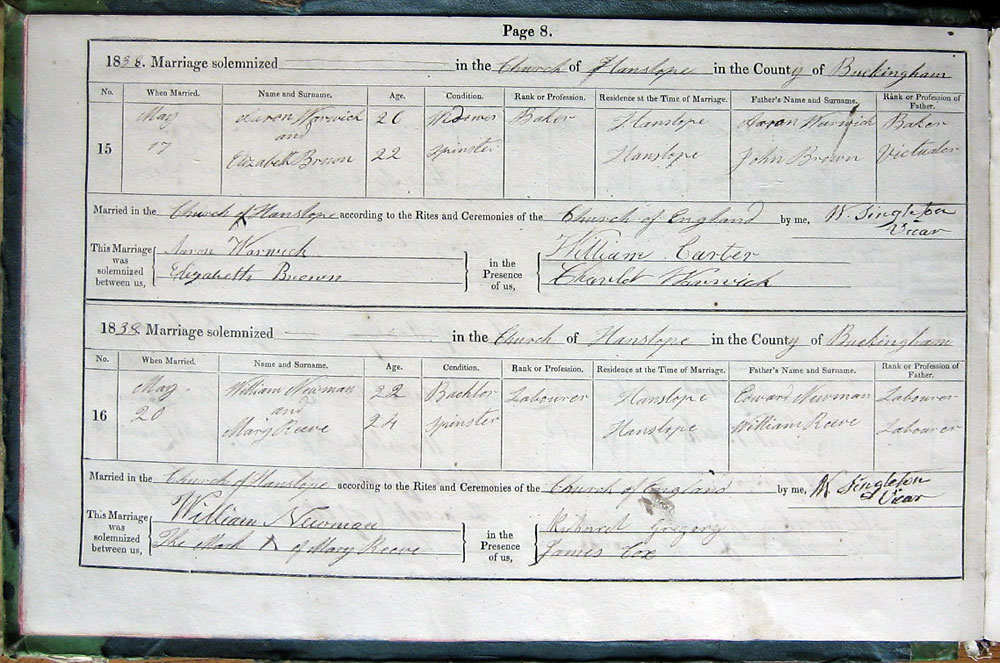 Page 8.
1838. Marriage solemnized in the Church of Hanslope in the County of Buckingham
No. When Married. Name and Surname. Age. Condition. Rank or Profession. Residence at the Time of Marriage. Father's Name and Surname. Rank or Profession of Father.
May Aaron Warwick 26 Widower Baker Hanslope Aaron Warwick Baker
15 17 and
Elizabeth Brown 22 Spinster Hanslope John Brown Victualer
Married in the Church of Hanslope according to the Rites and Ceremonies of the Church of England by me, W. Singleton
Vicar
This Marriage was solemnized between us,
Aaron Warwick
Elizabeth Brown
in the Presence of us,
William Carter
Charlot Warwick
1838. Marriage solemnized in the Church of Hanslope in the County of Buckingham
No. When Married. Name and Surname. Age. Condition. Rank or Profession. Residence at the Time of Marriage. Father's Name and Surname. Rank or Profession of Father.
May William Newman 22 Bachlor Labourer Hanslope Edward Newman Labourer
16 20 and
Mary Reeve 24 Spinster Hanslope William Reeve Labourer
Married in the Church of Hanslope according to the Rites and Ceremonies of the Church of England by me, W. Singleton
Vicar
This Marriage was solemnized between us,
William Newman
The Mark X of Mary Reeve
in the Presence of us,
Richard Gregory
James Cox